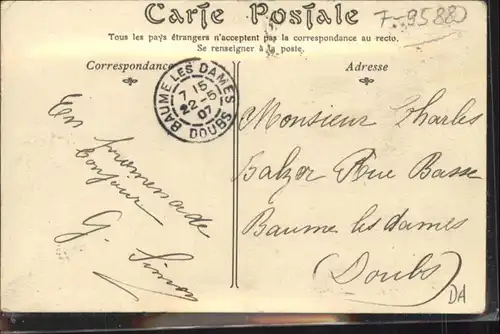 Carte Postale
F-95880
Tous les pays étrangers n'acceptent pas la correspondance au recto.
Se renseigner à la poste.
Correspondance
Adresse
BAUME LES DAMES
7 15
22-5
07
DOUBS
En promenade
Bonjour
G. Simon
Monsieur Charles
Balzer Rue Basse
Baume les dames
(Doubs)
DA